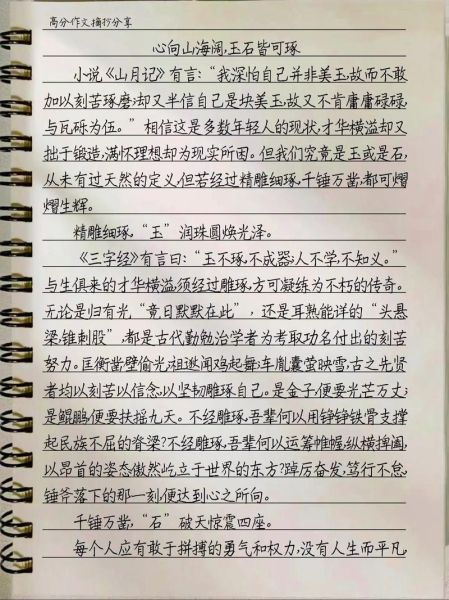 高分作文摘抄分享
心向山海阔,玉石皆可琢
小说《山月记》有言:“我深怕自己并非美玉,故而不敢
加以刻苦琢磨;却又半信自己是块美玉,故又不肯庸庸碌碌,
与瓦砾为伍。”相信这是多数年轻人的现状,才华横溢却又
拙于锻造,满怀理想却为现实所困。但我们究竟是玉或是石,
从未有过天然的定义,但若经过精雕细琢,千锤万凿,都可熠
熠生辉。
精雕细琢,“玉”润珠圆焕光泽。
《三字经》有言曰:“玉不琢,不成器;人不学,不知义。”
与生俱来的才华横溢,须经过雕琢,方可凝练为不朽的传奇。
无论是归有光,“竟日默默在此”,还是耳熟能详的“头悬
梁,锥刺股”,都是古代勤勉治学者为考取功名付出的刻苦
努力。匡衡凿壁偷光;祖逖闻鸡起舞;车胤囊萤映雪,古之先贤
者均以刻苦以信念,以坚韧雕琢自己。是金子,便要光芒万丈;
是鲲鹏,便要扶摇九天。不经雕琢,吾辈何以用铮铮铁骨支撑
起民族不屈的脊梁?不经雕琢,吾辈何以运筹帷幄,纵横捭阖,
以昂首的姿态傲然屹立于世界的东方?踔厉奋发,笃行不怠,
锤斧落下的那一刻,便达到心之所向。
千锤万凿,“石”破天惊震四座。
每个人应有敢于拼搏的勇气和权力,没有人生而平凡,